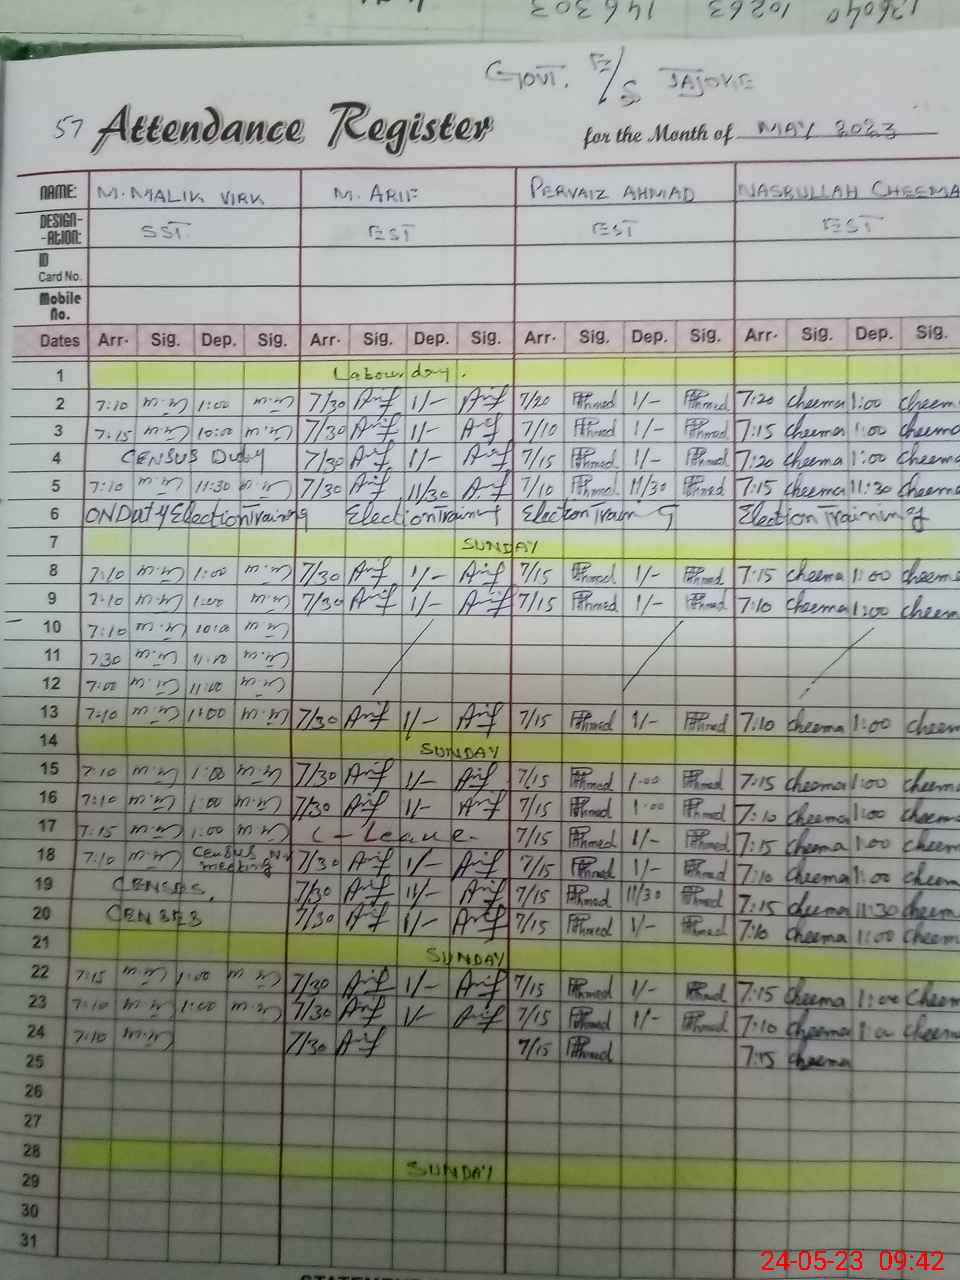 136040 10263 146303
GOVT. E/S JAJOKE
57 Attendance Register for the Month of MAY 2023
NAME: M. MALIK VIRK M. ARIF PERVAIZ AHMAD NASRULLAH CHEEMA
DESIGN--ATION: SST EST EST EST
ID Card No.
Mobile No.
Dates Arr. Sig. Dep. Sig. Arr. Sig. Dep. Sig. Arr. Sig. Dep. Sig. Arr. Sig. Dep. Sig.
1 Labour day.
2 7:10 1:00 7/30 Arif 1/- Arif 7/20 Ahmed 1/- Ahmed 7:20 cheema 1:00 cheem
3 7:15 10:20 7/30 Arif 1/- Arif 7/10 Ahmed 1/- Ahmed 7:15 cheema 1:00 cheema
4 CENSUS Duty 7/30 Arif 1/- Arif 7/15 Ahmed 1/- Ahmed 7:20 cheema 1:00 cheema
5 7:10 11:30 7/30 Arif 11/30 Arif 7/10 Ahmed 11/30 Ahmed 7:15 cheema 11:30 cheema
6 ON Duty Election Training Election Training Election Training Election Training
7 SUNDAY
8 7:10 1:00 7/30 Arif 1/- Arif 7/15 Ahmed 1/- Ahmed 7:15 cheema 1:00 cheema
9 7:10 7/30 Arif 1/- Arif 7/15 Ahmed 1/- Ahmed 7:10 cheema 1:00 cheem
10 7:10
11 7:30
12 7:00 11:00
13 7:10 1:00 7/30 Arif 1/- Arif 7/15 Ahmed 1/- Ahmed 7:10 cheema 1:00 cheem
14 SUNDAY
15 7:10 1:00 7/30 Arif 1/- Arif 7/15 Ahmed 1:00 Ahmed 7:15 cheema 1:00 cheem
16 7:10 1:00 7/30 Arif 1/- Arif 7/15 Ahmed 1:00 Ahmed 7:10 cheema 1:00 cheem
17 7:15 1:00 C-Leave 7/15 Ahmed 1/- Ahmed 7:15 cheema 1:00 cheem
18 7:10 Census meeting 7/30 Arif 1/- Arif 7/15 Ahmed 1/- Ahmed 7:10 cheema 1:00 cheem
19 CENSUS. 7/30 Arif 11/- Arif 7/15 Ahmed 11/30 Ahmed 7:15 cheema 11:30 cheem
20 7/30 Arif 1/- Arif 7/15 Ahmed 1/- Ahmed 7:10 cheema 1:00 cheem
21 SUNDAY
22 7:15 1:00 7/30 Arif 1/- Arif 7/15 Ahmed 1/- Ahmed 7:15 cheema 1:00 cheem
23 7:10 1:00 7/30 Arif 1/- Arif 7/15 Ahmed 1/- Ahmed 7:10 cheema cheem
24 7:10 7/30 Arif 7/15 Ahmed 7:15 cheema
25
26
27
28 SUNDAY
29
30
31
24-05-23 09:42